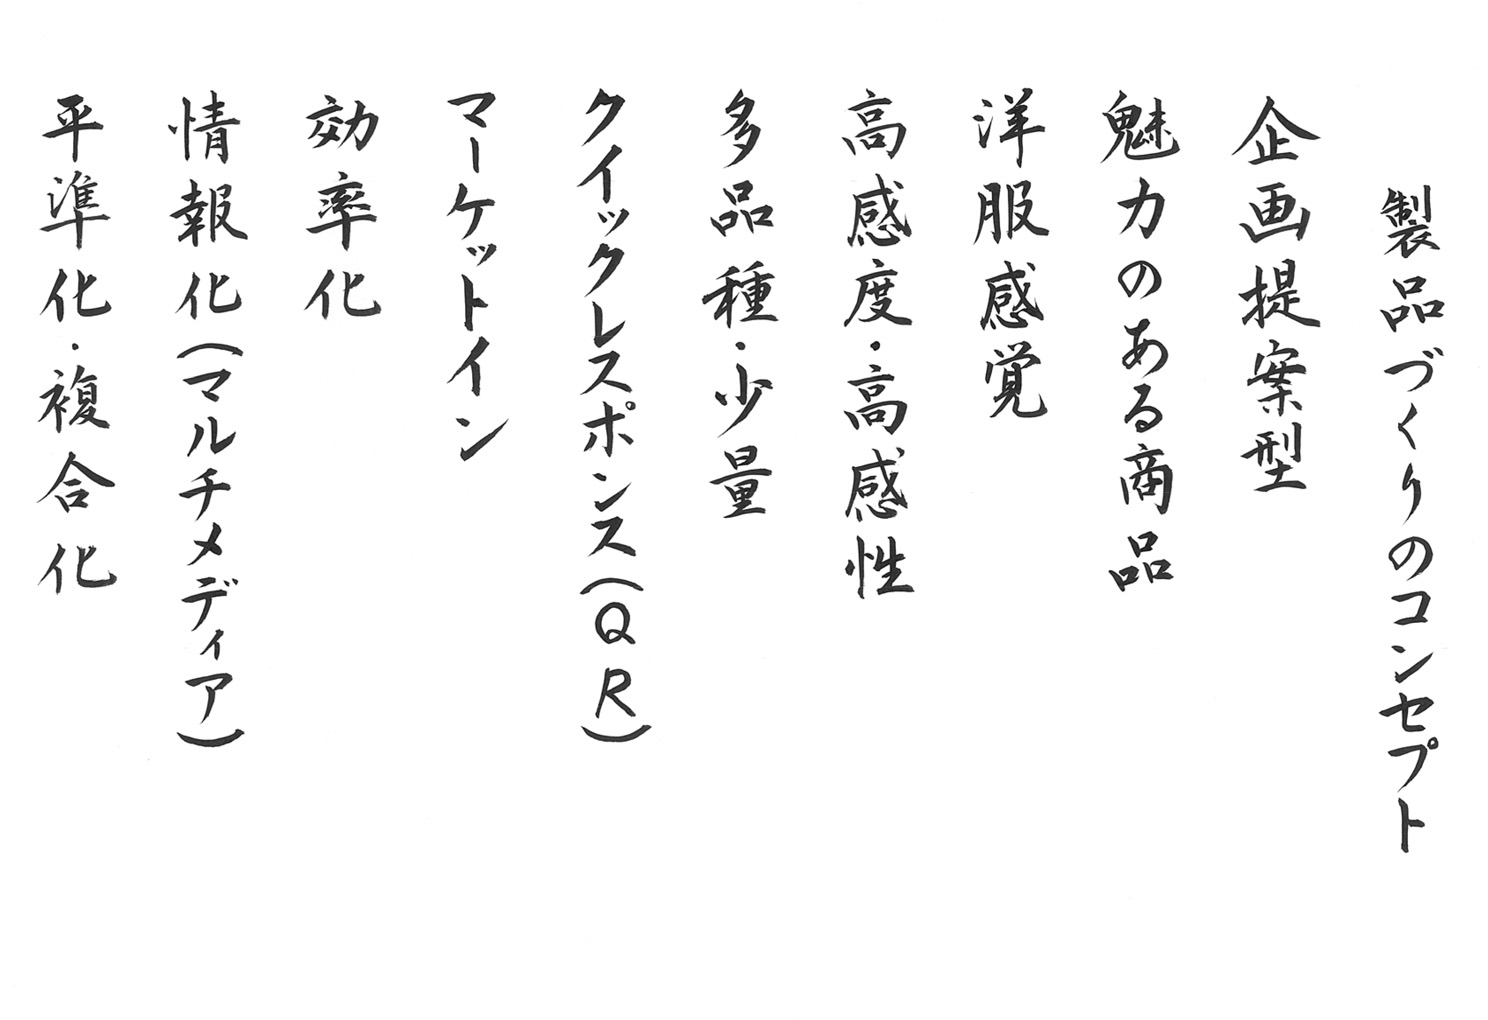 製品づくりのコンセプト
企画提案型
魅力のある商品
洋服感覚
高感度・高感性
多品種・少量
クイックレスポンス(QR)
マーケットイン
効率化
情報化(マルチメディア)
平準化・複合化